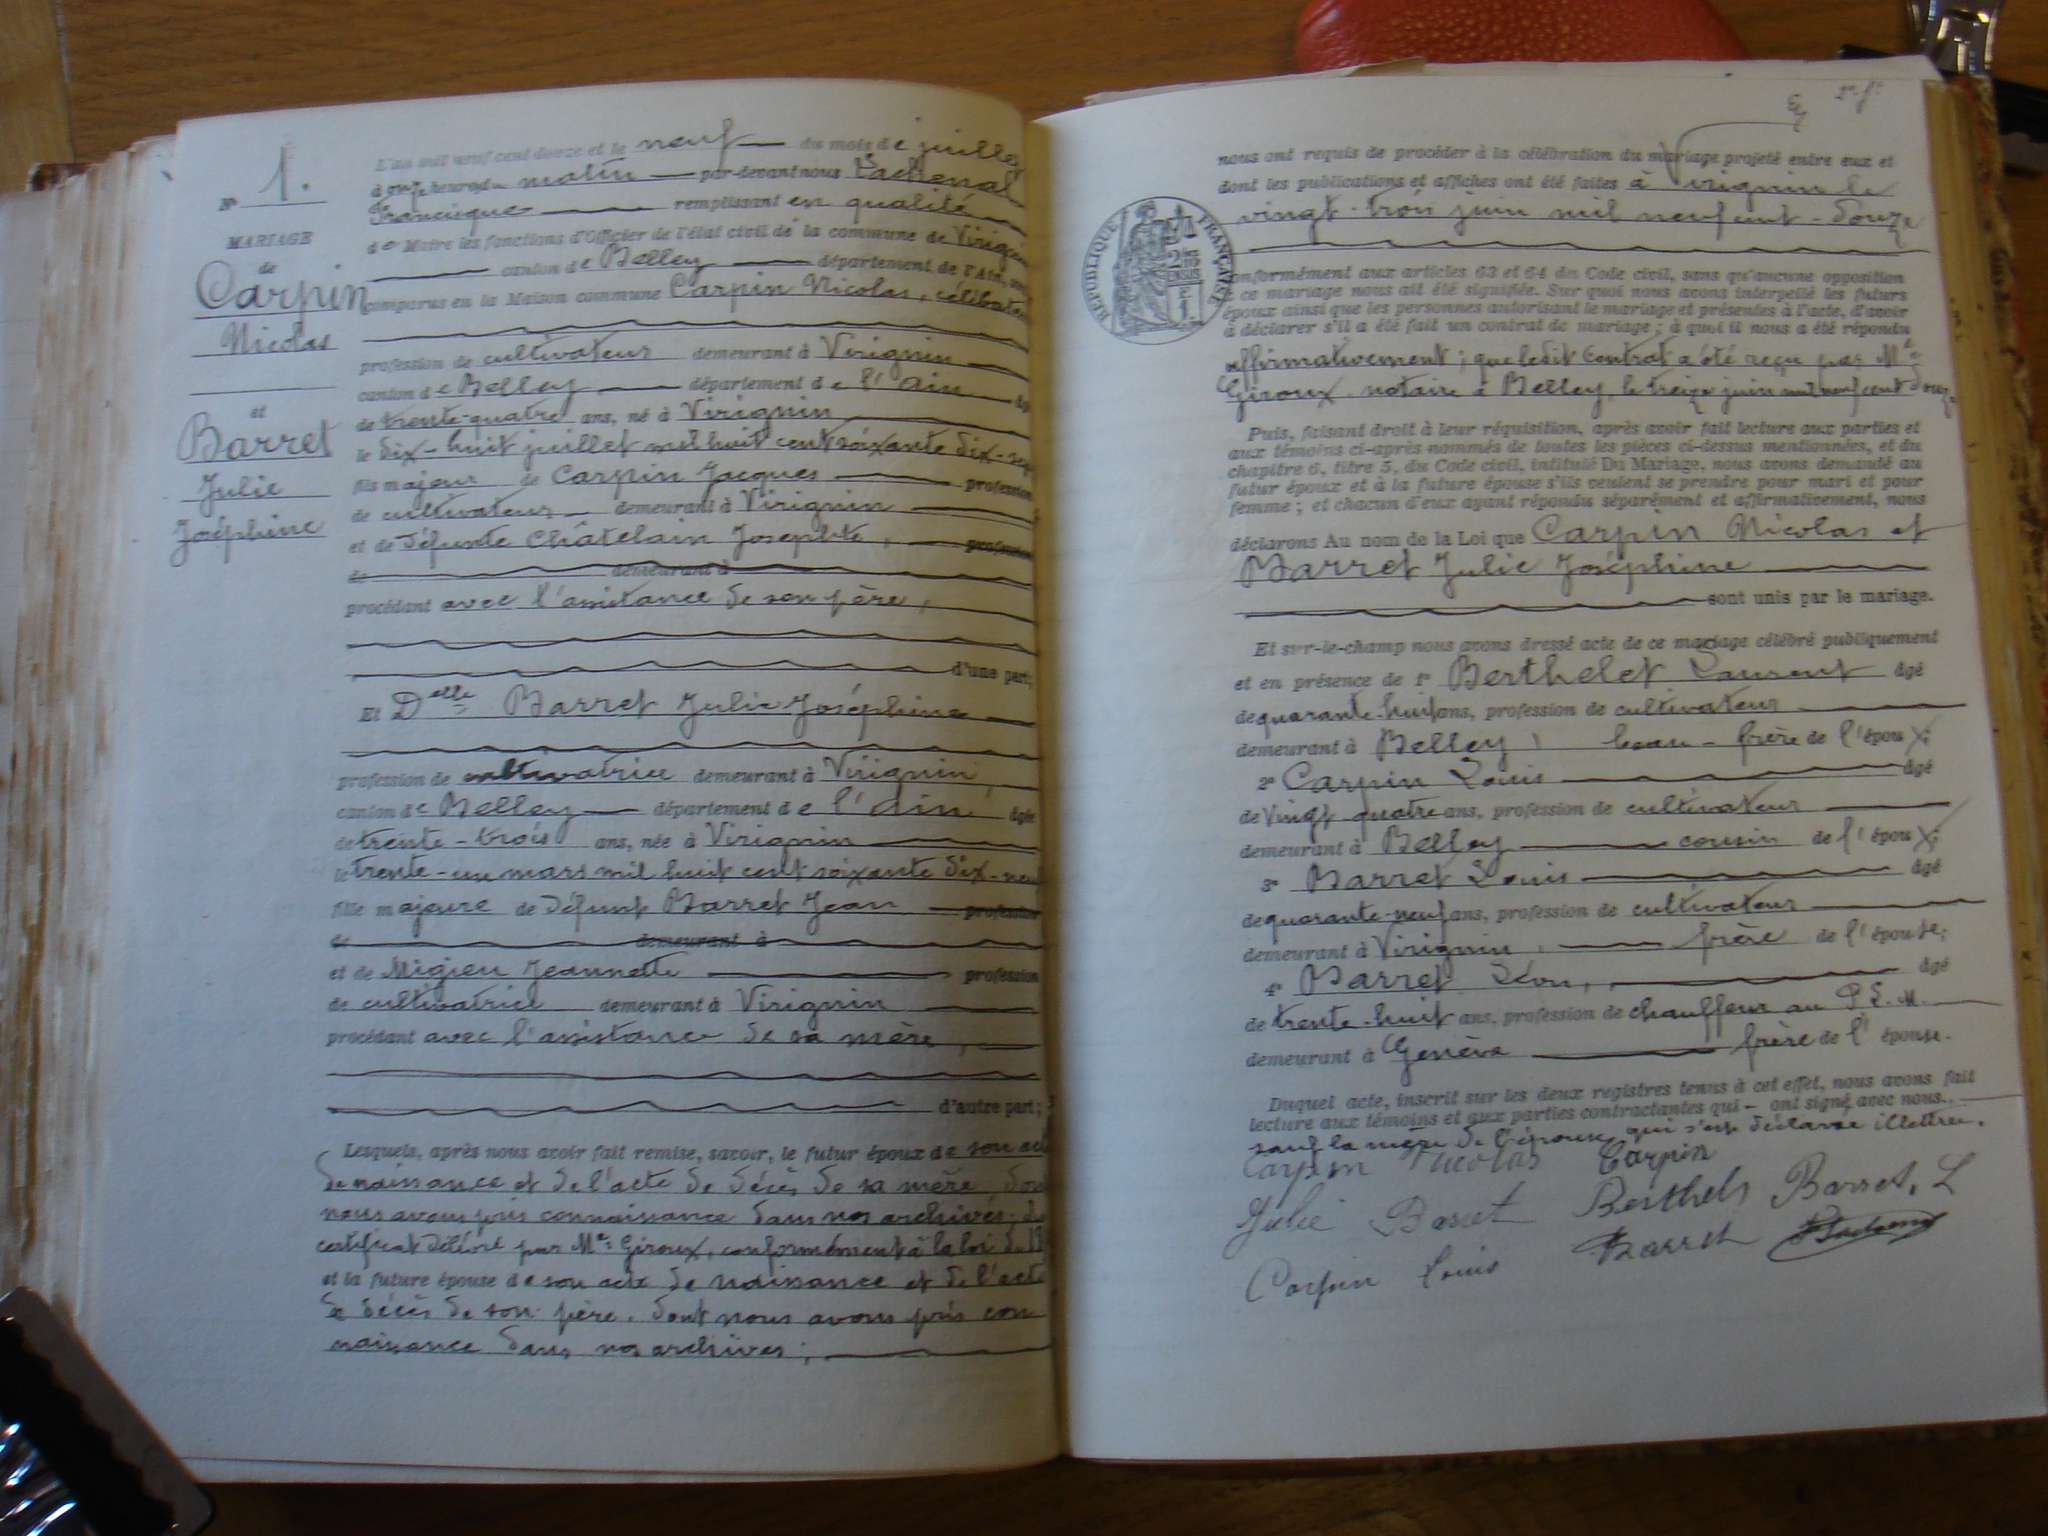 1.
Nº
MARIAGE
de
Carpin
Nicolas
et
Barret
Julie
Joséphine
L'an mil neuf cent douze et le neuf du mois de juillet
à onze heures du matin par-devant nous Lachenal
Francisque remplissant en qualité
de Maire les fonctions d'Officier de l'état civil de la commune de Virignin
canton de Belley département de l'Ain, sont
comparus en la Maison commune Carpin Nicolas, célibataire
profession de cultivateur demeurant à Virignin
canton de Belley département de l'Ain âgé
de trente-quatre ans, né à Virignin
le dix-huit juillet mil huit cent soixante dix-sept
fils majeur de Carpin Jacques profession
de cultivateur demeurant à Virignin
et de défunte Châtelain Josephte, profession
de demeurant à
procédant avec l'assistance de son père,
d'une part;
Et Delle Barret Julie Joséphine
profession de cultivatrice demeurant à Virignin,
canton de Belley département de l'Ain âgée
de trente-trois ans, née à Virignin
le trente-un mars mil huit cent soixante dix-neuf
fille majeure de défunt Barret Jean profession
de demeurant à
et de Migieu Jeannette profession
de cultivatrice demeurant à Virignin
procédant avec l'assistance de sa mère,
d'autre part;
Lesquels, après nous avoir fait remise, savoir, le futur époux de son acte
de naissance et de l'acte de décès de sa mère, dont
nous avons pris connaissance dans nos archives; du
certificat délivré par Me Giroux, conformément à la loi du
et la future épouse de son acte de naissance et de l'acte
de décès de son père, dont nous avons pris con
naissance dans nos archives;
2e ft
nous ont requis de procéder à la célébration du mariage projeté entre eux et
dont les publications et affiches ont été faites à Virignin le
vingt-trois juin mil neuf cent-douze
RÉPUBLIQUE FRANÇAISE
conformément aux articles 63 et 64 du Code civil, sans qu'aucune opposition
à ce mariage nous ait été signifiée. Sur quoi nous avons interpellé les futurs
époux ainsi que les personnes autorisant le mariage et présentes à l'acte, d'avoir
à déclarer s'il a été fait un contrat de mariage; à quoi il nous a été répondu
affirmativement; que ledit Contrat a été reçu par Me
Giroux, notaire à Belley, le treize juin mil neuf cent douze
Puis, faisant droit à leur réquisition, après avoir fait lecture aux parties et
aux témoins ci-après nommés de toutes les pièces ci-dessus mentionnées, et du
chapitre 6, titre 5, du Code civil, intitulé Du Mariage, nous avons demandé au
futur époux et à la future épouse s'ils veulent se prendre pour mari et pour
femme; et chacun d'eux ayant répondu séparément et affirmativement, nous
déclarons Au nom de la Loi que Carpin Nicolas et
Barret Julie Joséphine
sont unis par le mariage.
Et sur-le-champ nous avons dressé acte de ce mariage célébré publiquement
et en présence de 1º Berthelet Laurent âgé
de quarante-huit ans, profession de cultivateur
demeurant à Belley, beau-frère de l'époux;
2º Carpin Louis âgé
de vingt-quatre ans, profession de cultivateur
demeurant à Belley cousin de l'époux;
3º Barret Louis âgé
de quarante-neuf ans, profession de cultivateur
demeurant à Virignin, frère de l'épouse;
4º Barret Léon, âgé
de trente-huit ans, profession de chauffeur au P.L.M.
demeurant à Genève frère de l'épouse.
Duquel acte, inscrit sur les deux registres tenus à cet effet, nous avons fait
lecture aux témoins et aux parties contractantes qui ont signé avec nous.
sauf la mère de l'épouse qui s'est déclarée illettrée.
Carpin Nicolas Carpin
Julie Barret Berthelet Barret. L
Carpin Louis Barret